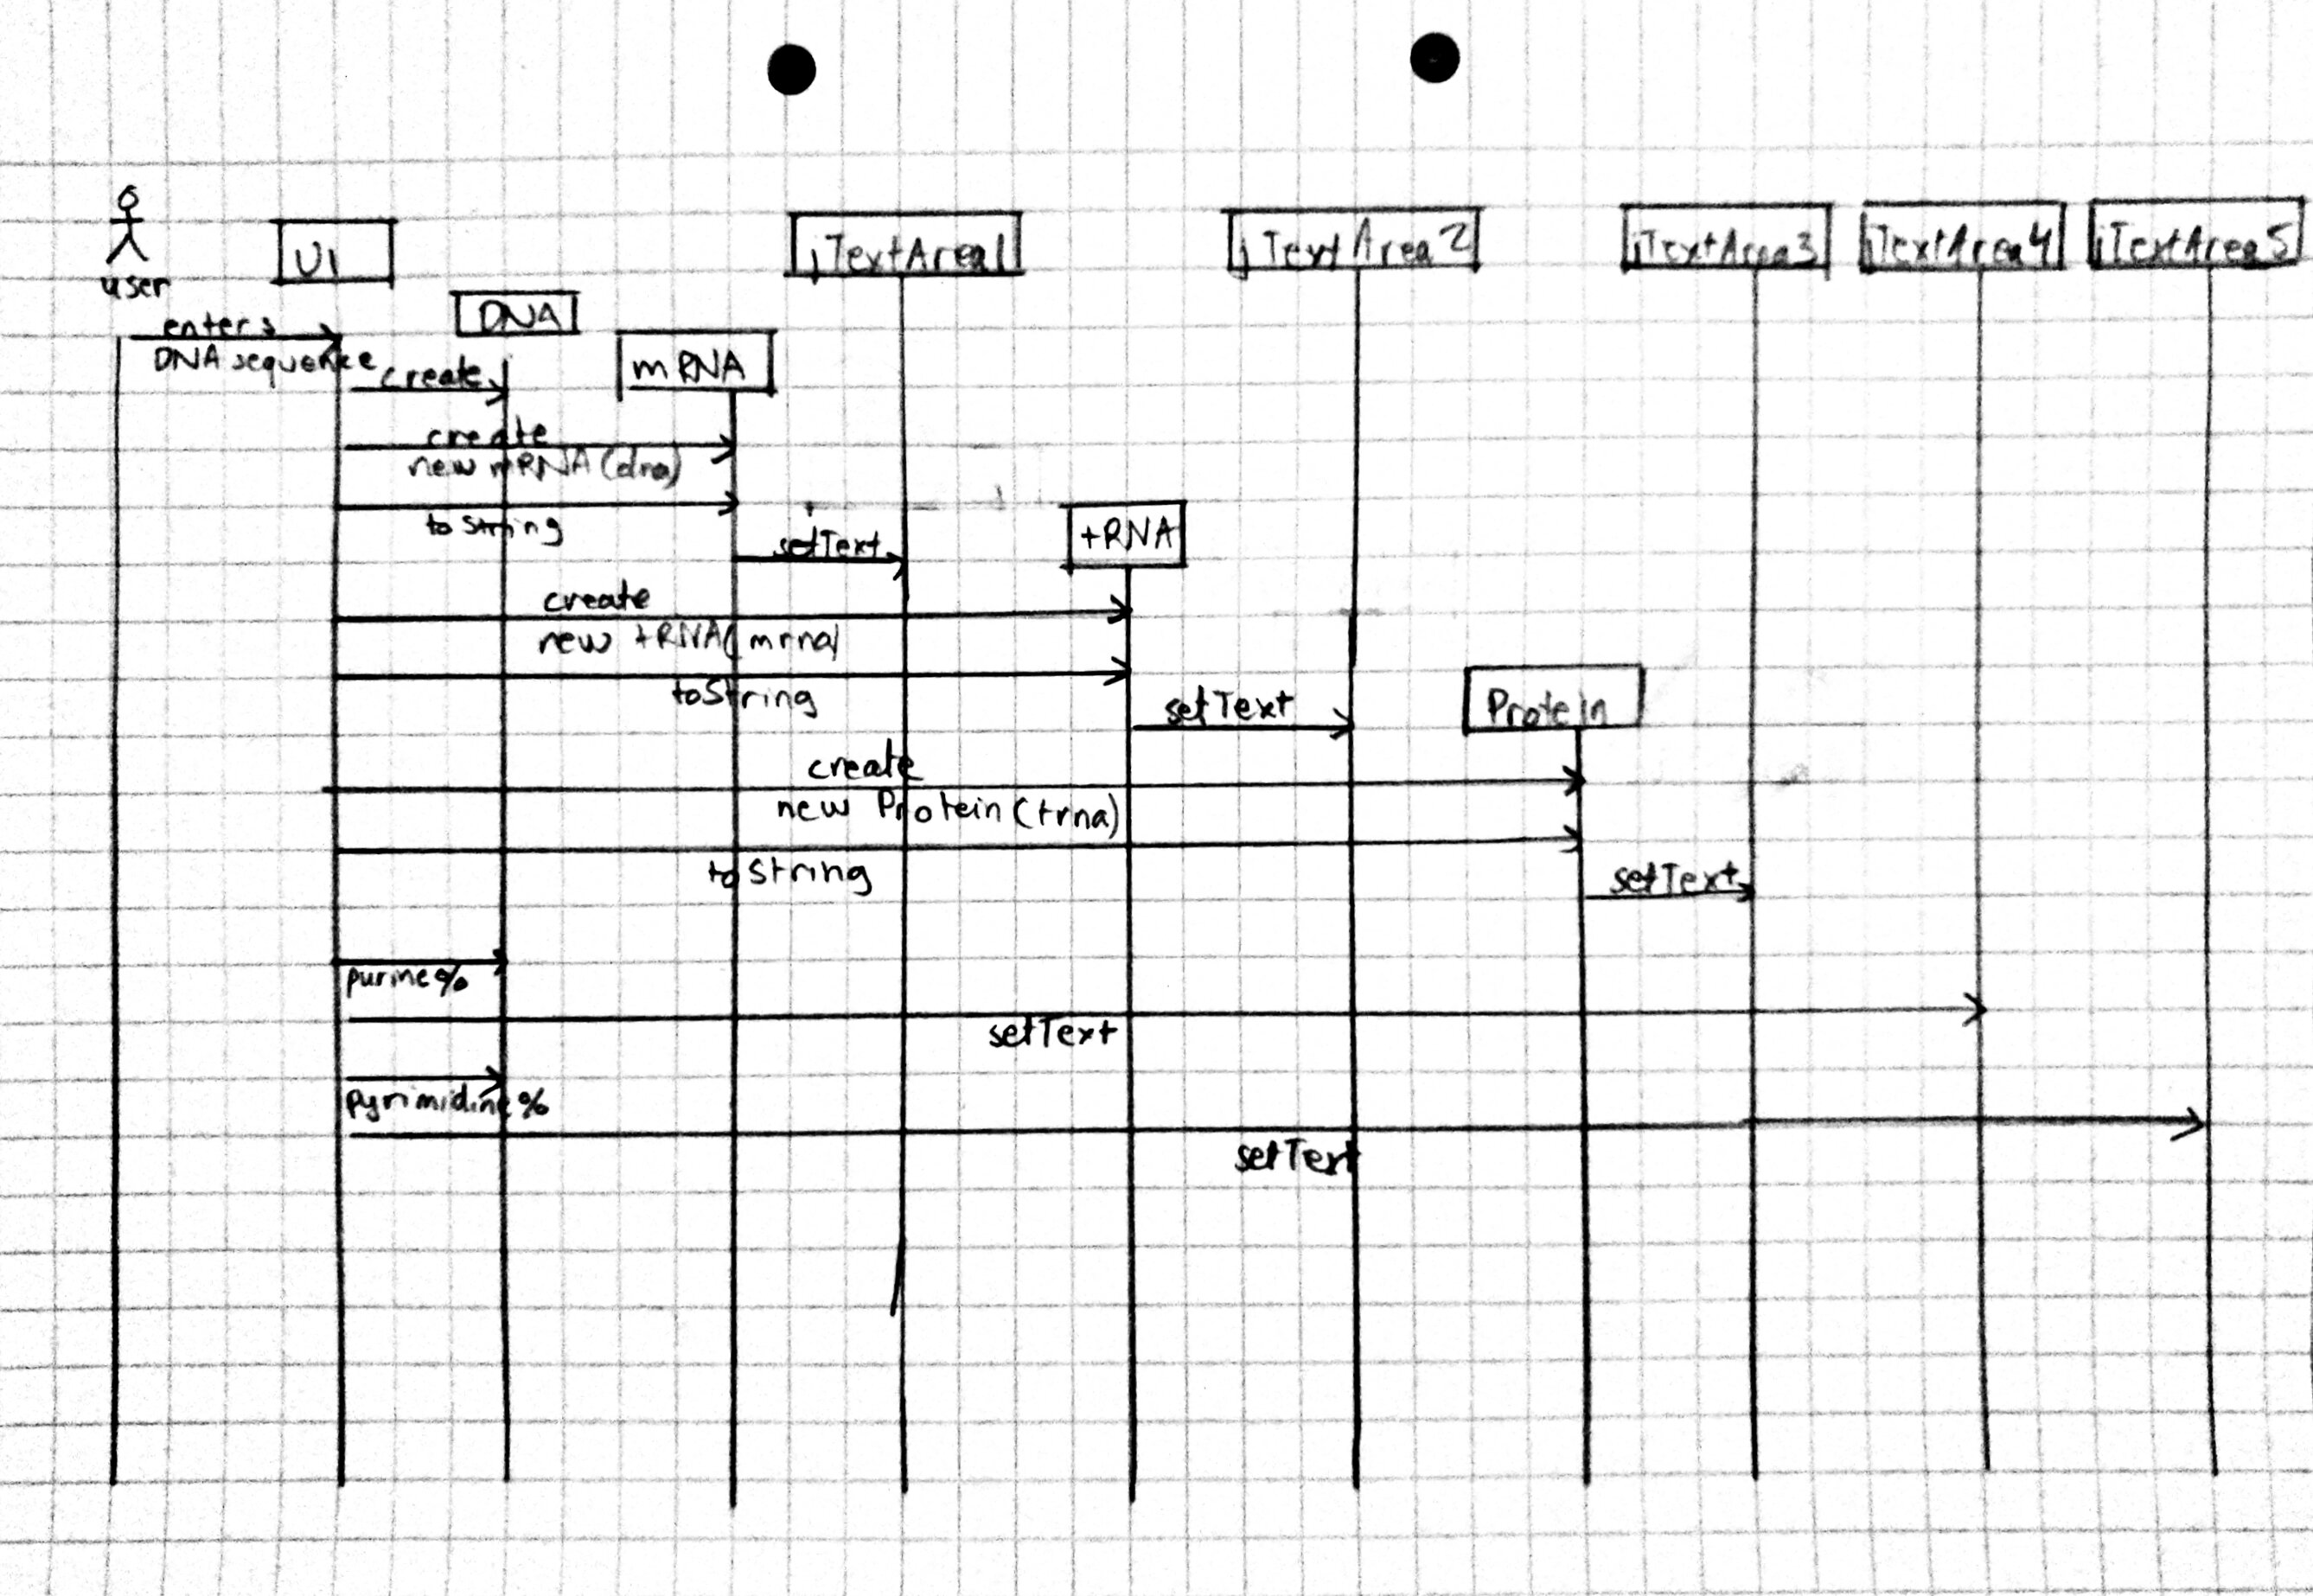 user
UI
jTextArea1
jTextArea2
jTextArea3
jTextArea4
jTextArea5
DNA
enters
DNA sequence
create
mRNA
create
new mRNA(dna)
toString
setText
tRNA
create
new tRNA(mrna)
toString
setText
Protein
create
new Protein(trna)
toString
setText
purine%
setText
pyrimidine%
setText